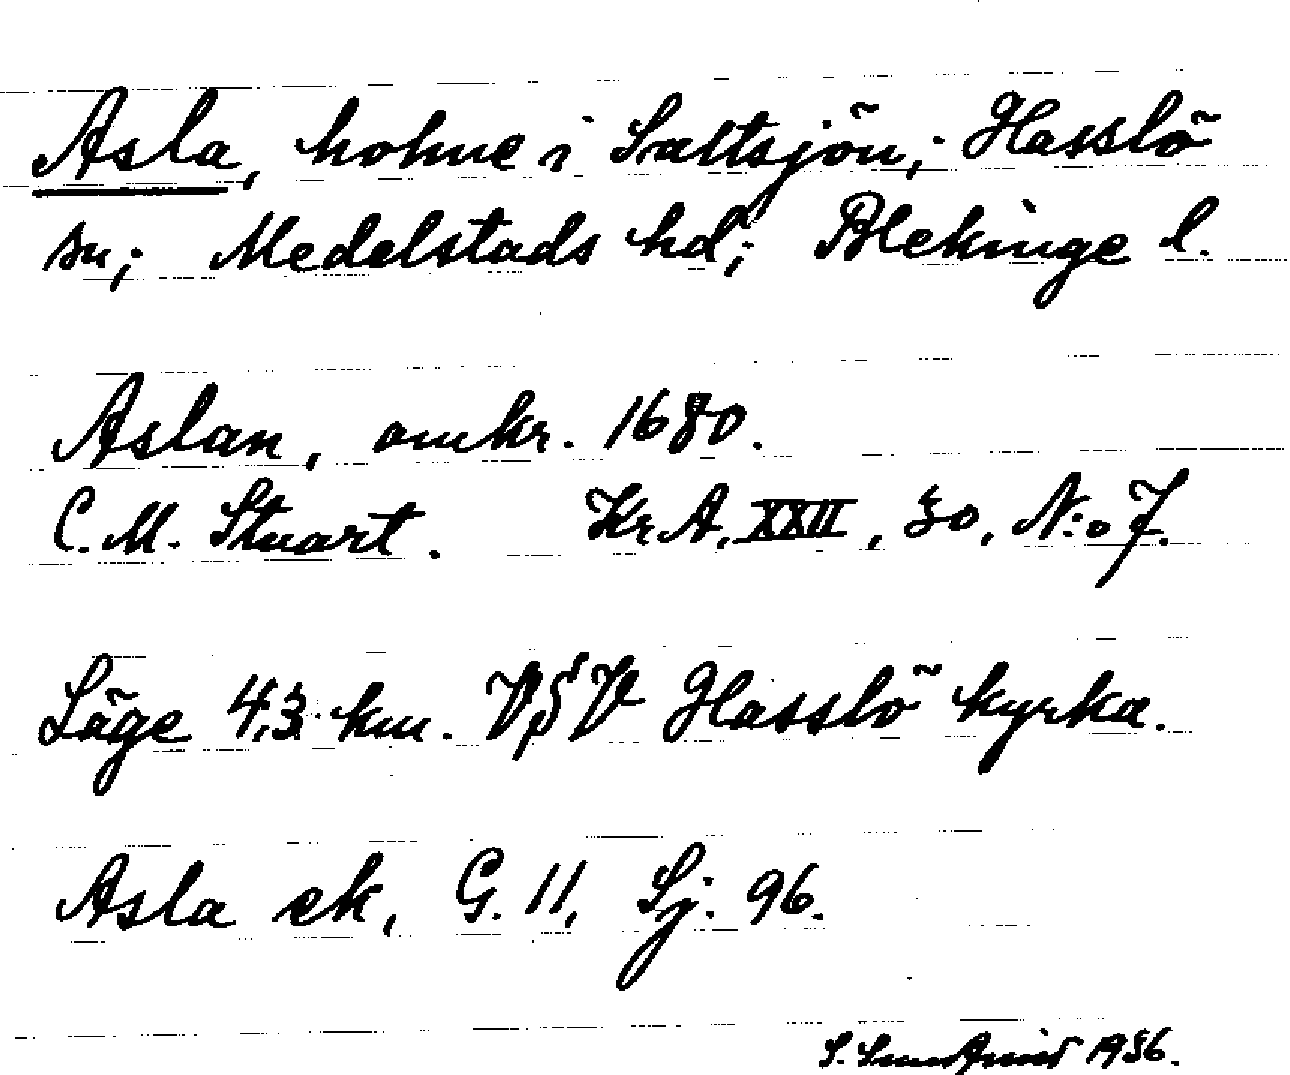 Asla, holme i Saltsjön; Hasslö
sn; Medelstads hd; Blekinge l.
Aslan, omkr. 1680.
C. M. Stuart. Kr. A. XXII, 30, N:o 7.
Läge 4,3 km. VSV Hasslö kyrka.
Asla ek, G. 11, Sj. 96.
S. 1936.